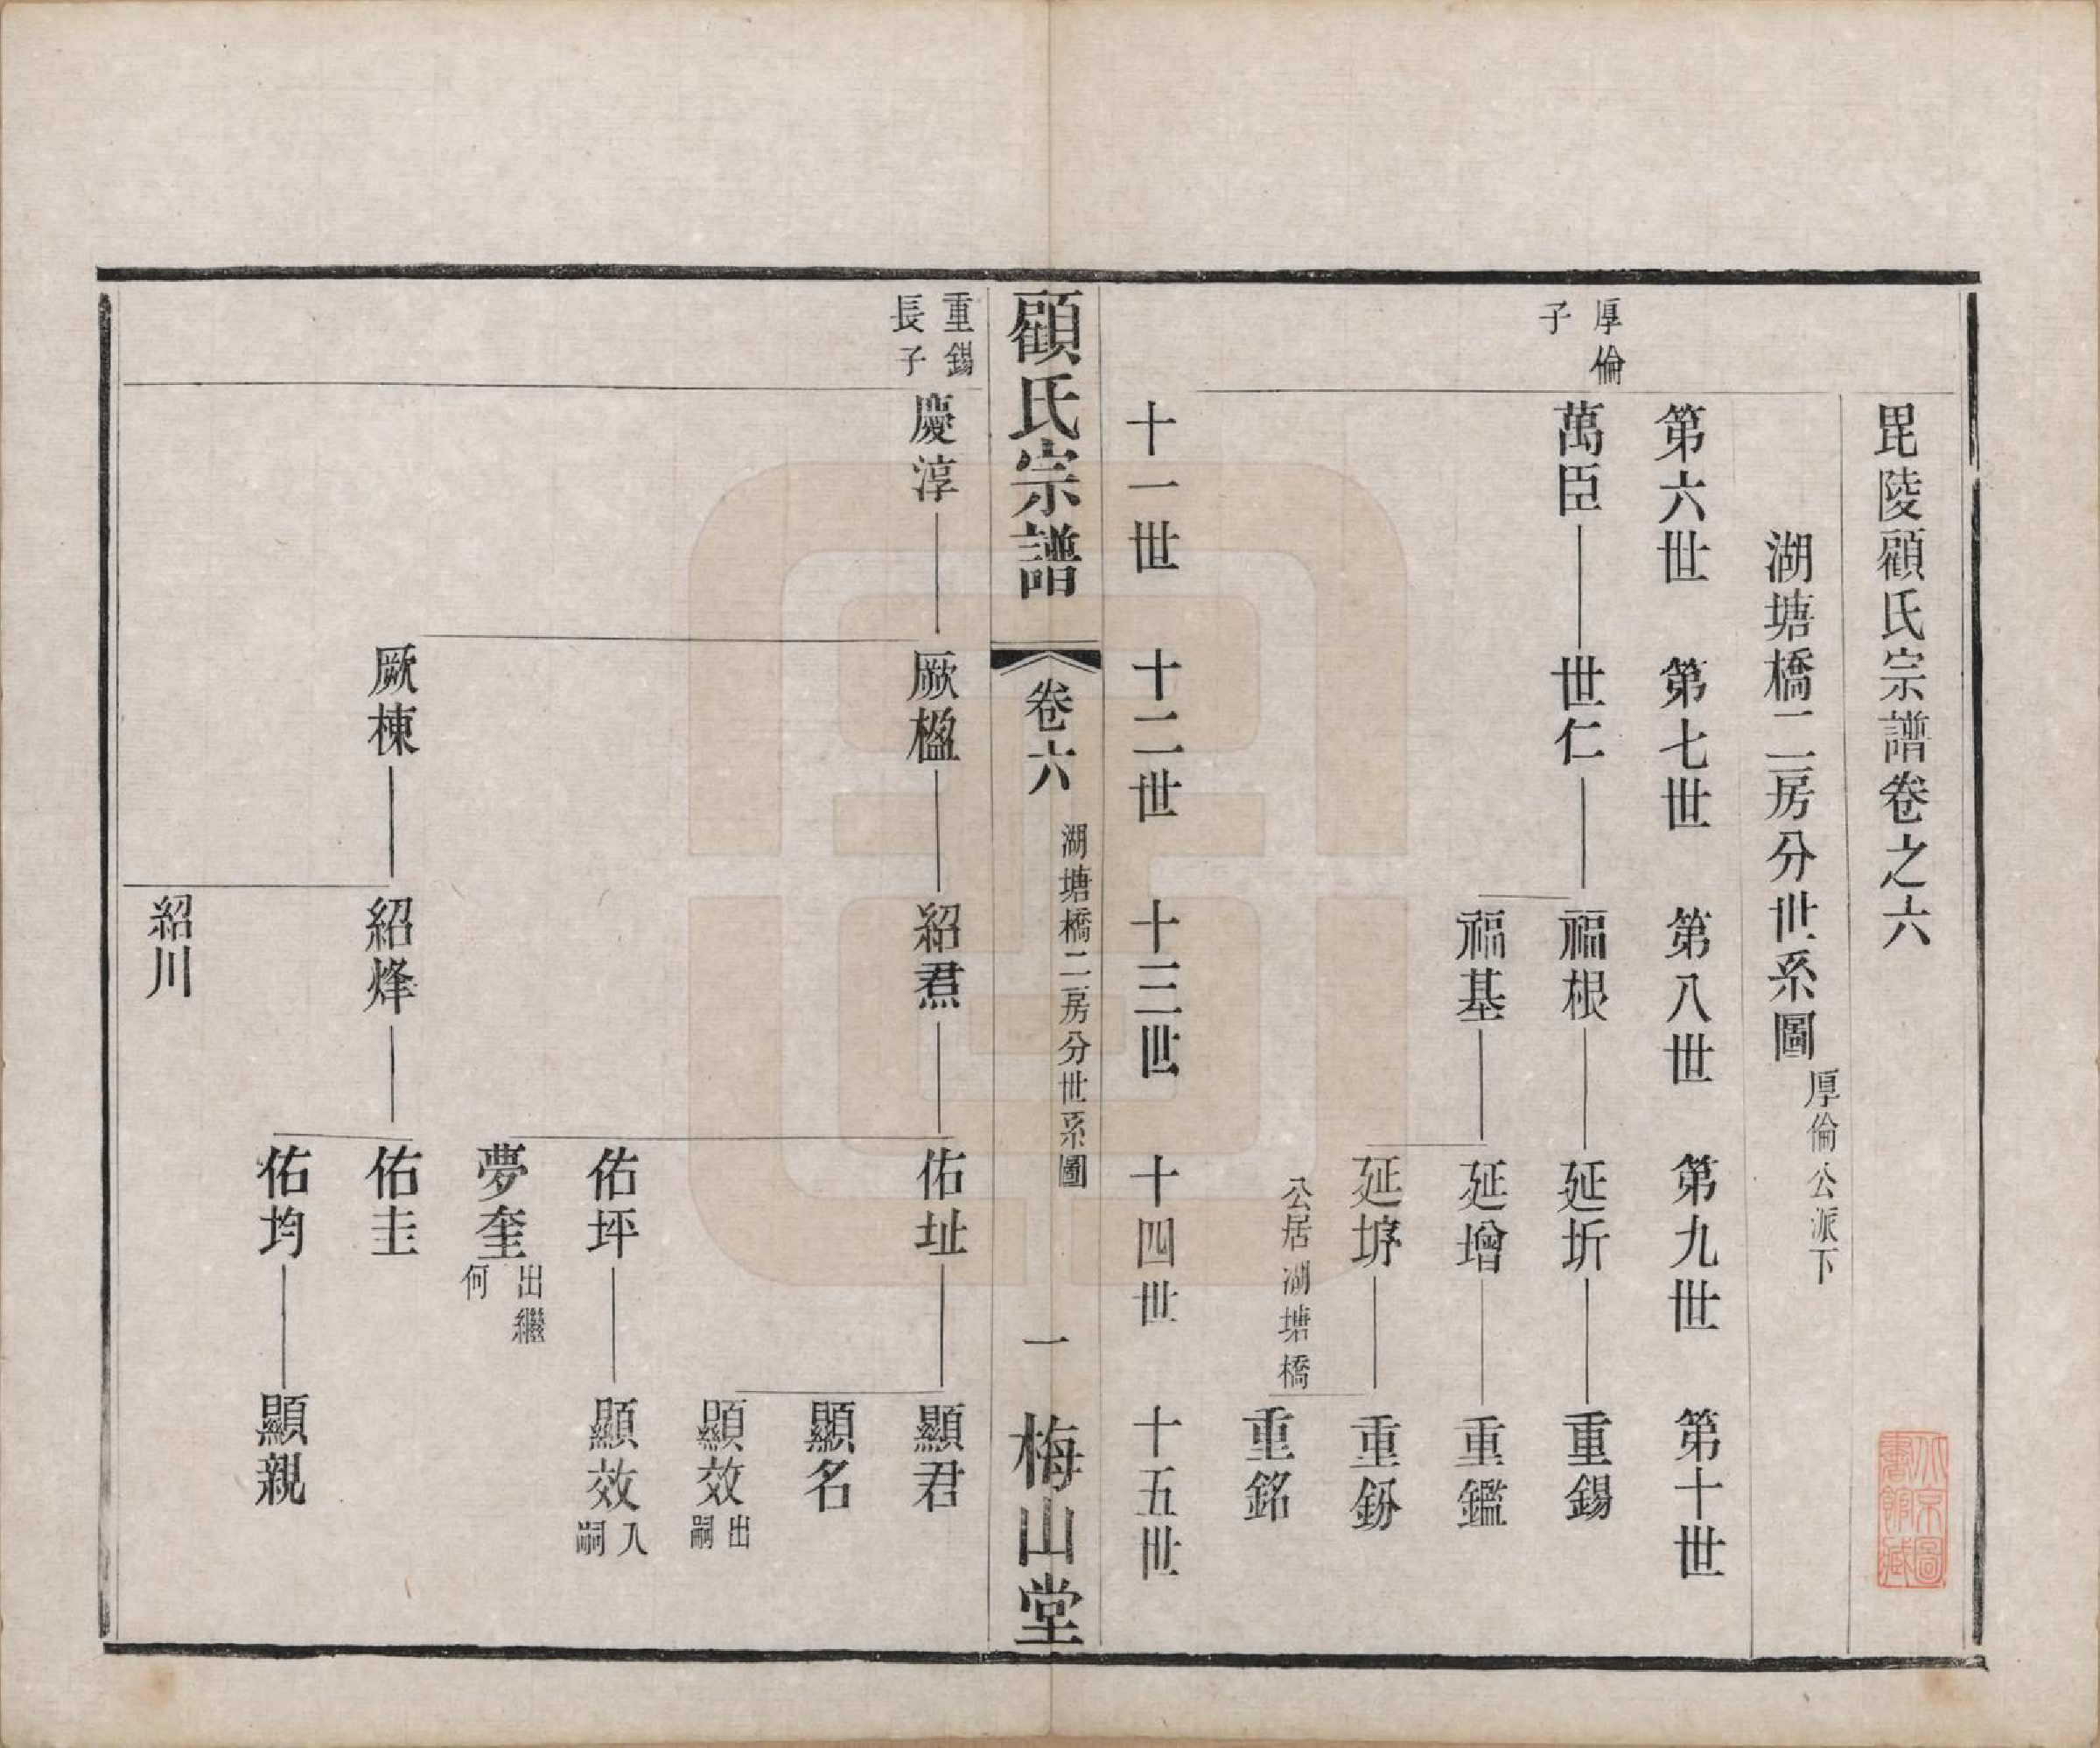 毘陵顧氏宗譜卷之六
湖塘橋二房分世系圖 厚倫公派下
第六世 第七世 第八世 第九世 第十世
厚倫子
萬臣 世仁 福根 延圻 重錫
福基 延增 重鑑
延㙷 重鈖
公居湖塘橋
重銘
十一世 十二世 十三世 十四世 十五世
顧氏宗譜 卷六 湖塘橋二房分世系圖 一 梅山堂
重錫長子
慶淳 厥楹 紹焄 佑址 顯君
顯名
顯效 出嗣
佑坪 顯效 入嗣
夢奎 出繼何
厥棟 紹烽 佑圭
佑均 顯親
紹川
北京圖書館藏